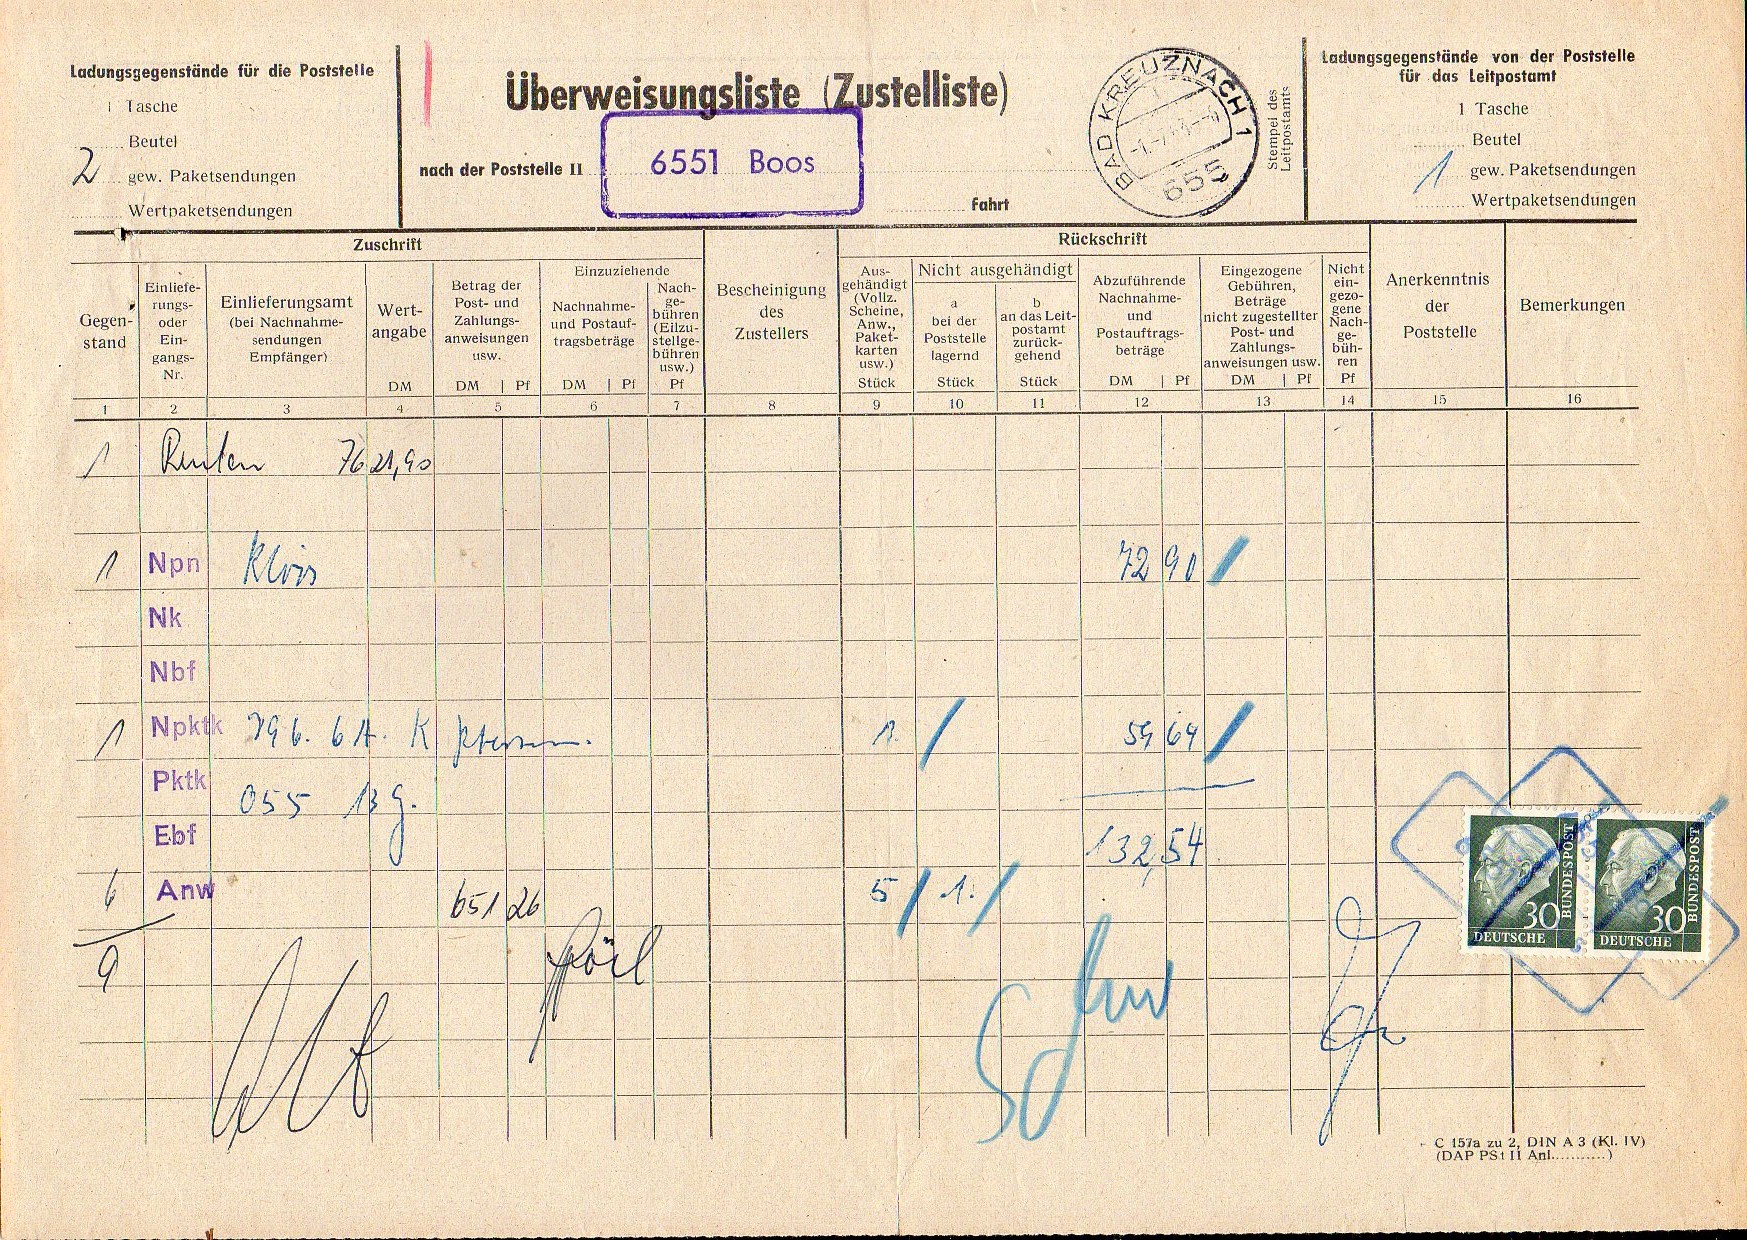 Ladungsgegenstände für die Poststelle
1 Tasche
Beutel
2 gew. Paketsendungen
Wertpaketsendungen
Überweisungsliste (Zustelliste)
nach der Poststelle II
6551 Boos
Fahrt
BAD KREUZNACH 1
655
Stempel des
Leitpostamts
Ladungsgegenstände von der Poststelle
für das Leitpostamt
1 Tasche
Beutel
1 gew. Paketsendungen
Wertpaketsendungen
Zuschrift
Rückschrift
Gegen-
stand
Einliefe-
rungs-
oder
Ein-
gangs-
Nr.
Einlieferungsamt
(bei Nachnahme-
sendungen
Empfänger)
Wert-
angabe
DM
Betrag der
Post- und
Zahlungs-
anweisungen
usw.
DM | Pf
Einzuziehende
Nachnahme-
und Postauf-
tragsbeträge
DM | Pf
Nach-
ge-
bühren
(Eilzu-
stellge-
bühren
usw.)
Pf
Bescheinigung
des
Zustellers
Aus-
gehändigt
(Vollz.
Scheine,
Anw.,
Paket-
karten
usw.)
Stück
Nicht ausgehändigt
a
bei der
Poststelle
lagernd
Stück
b
an das Leit-
postamt
zurück-
gehend
Stück
Abzuführende
Nachnahme-
und
Postauftrags-
beträge
DM | Pf
Eingezogene
Gebühren,
Beträge
nicht zugestellter
Post- und
Zahlungs-
anweisungen usw.
DM | Pf
Nicht
ein-
gezo-
gene
Nach-
ge-
büh-
ren
Pf
Anerkenntnis
der
Poststelle
Bemerkungen
1 2 3 4 5 6 7 8 9 10 11 12 13 14 15 16
1 Renten 7621,90
1 Npn 72 90
Nk
Nbf
1 Npktk 796. 59 64
Pktk 055
Ebf 132,54
6 Anw 651 26 5 1.
9
30 BUNDESPOST
DEUTSCHE
30 BUNDESPOST
DEUTSCHE
C 157a zu 2, DIN A 3 (Kl. IV)
(DAP PSt II Anl..........)